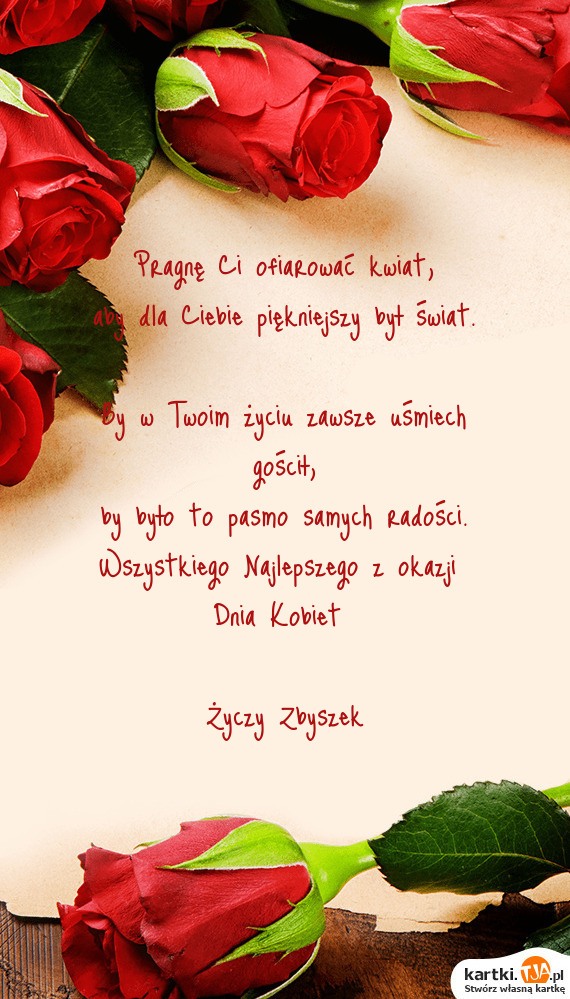 Pragnę Ci ofiarować kwiat,
aby dla Ciebie piękniejszy był świat.
By w Twoim życiu zawsze uśmiech
gościł,
by było to pasmo samych radości.
Wszystkiego Najlepszego z okazji
Dnia Kobiet
Życzy Zbyszek
kartki.TJA.pl
Stwórz własną kartkę